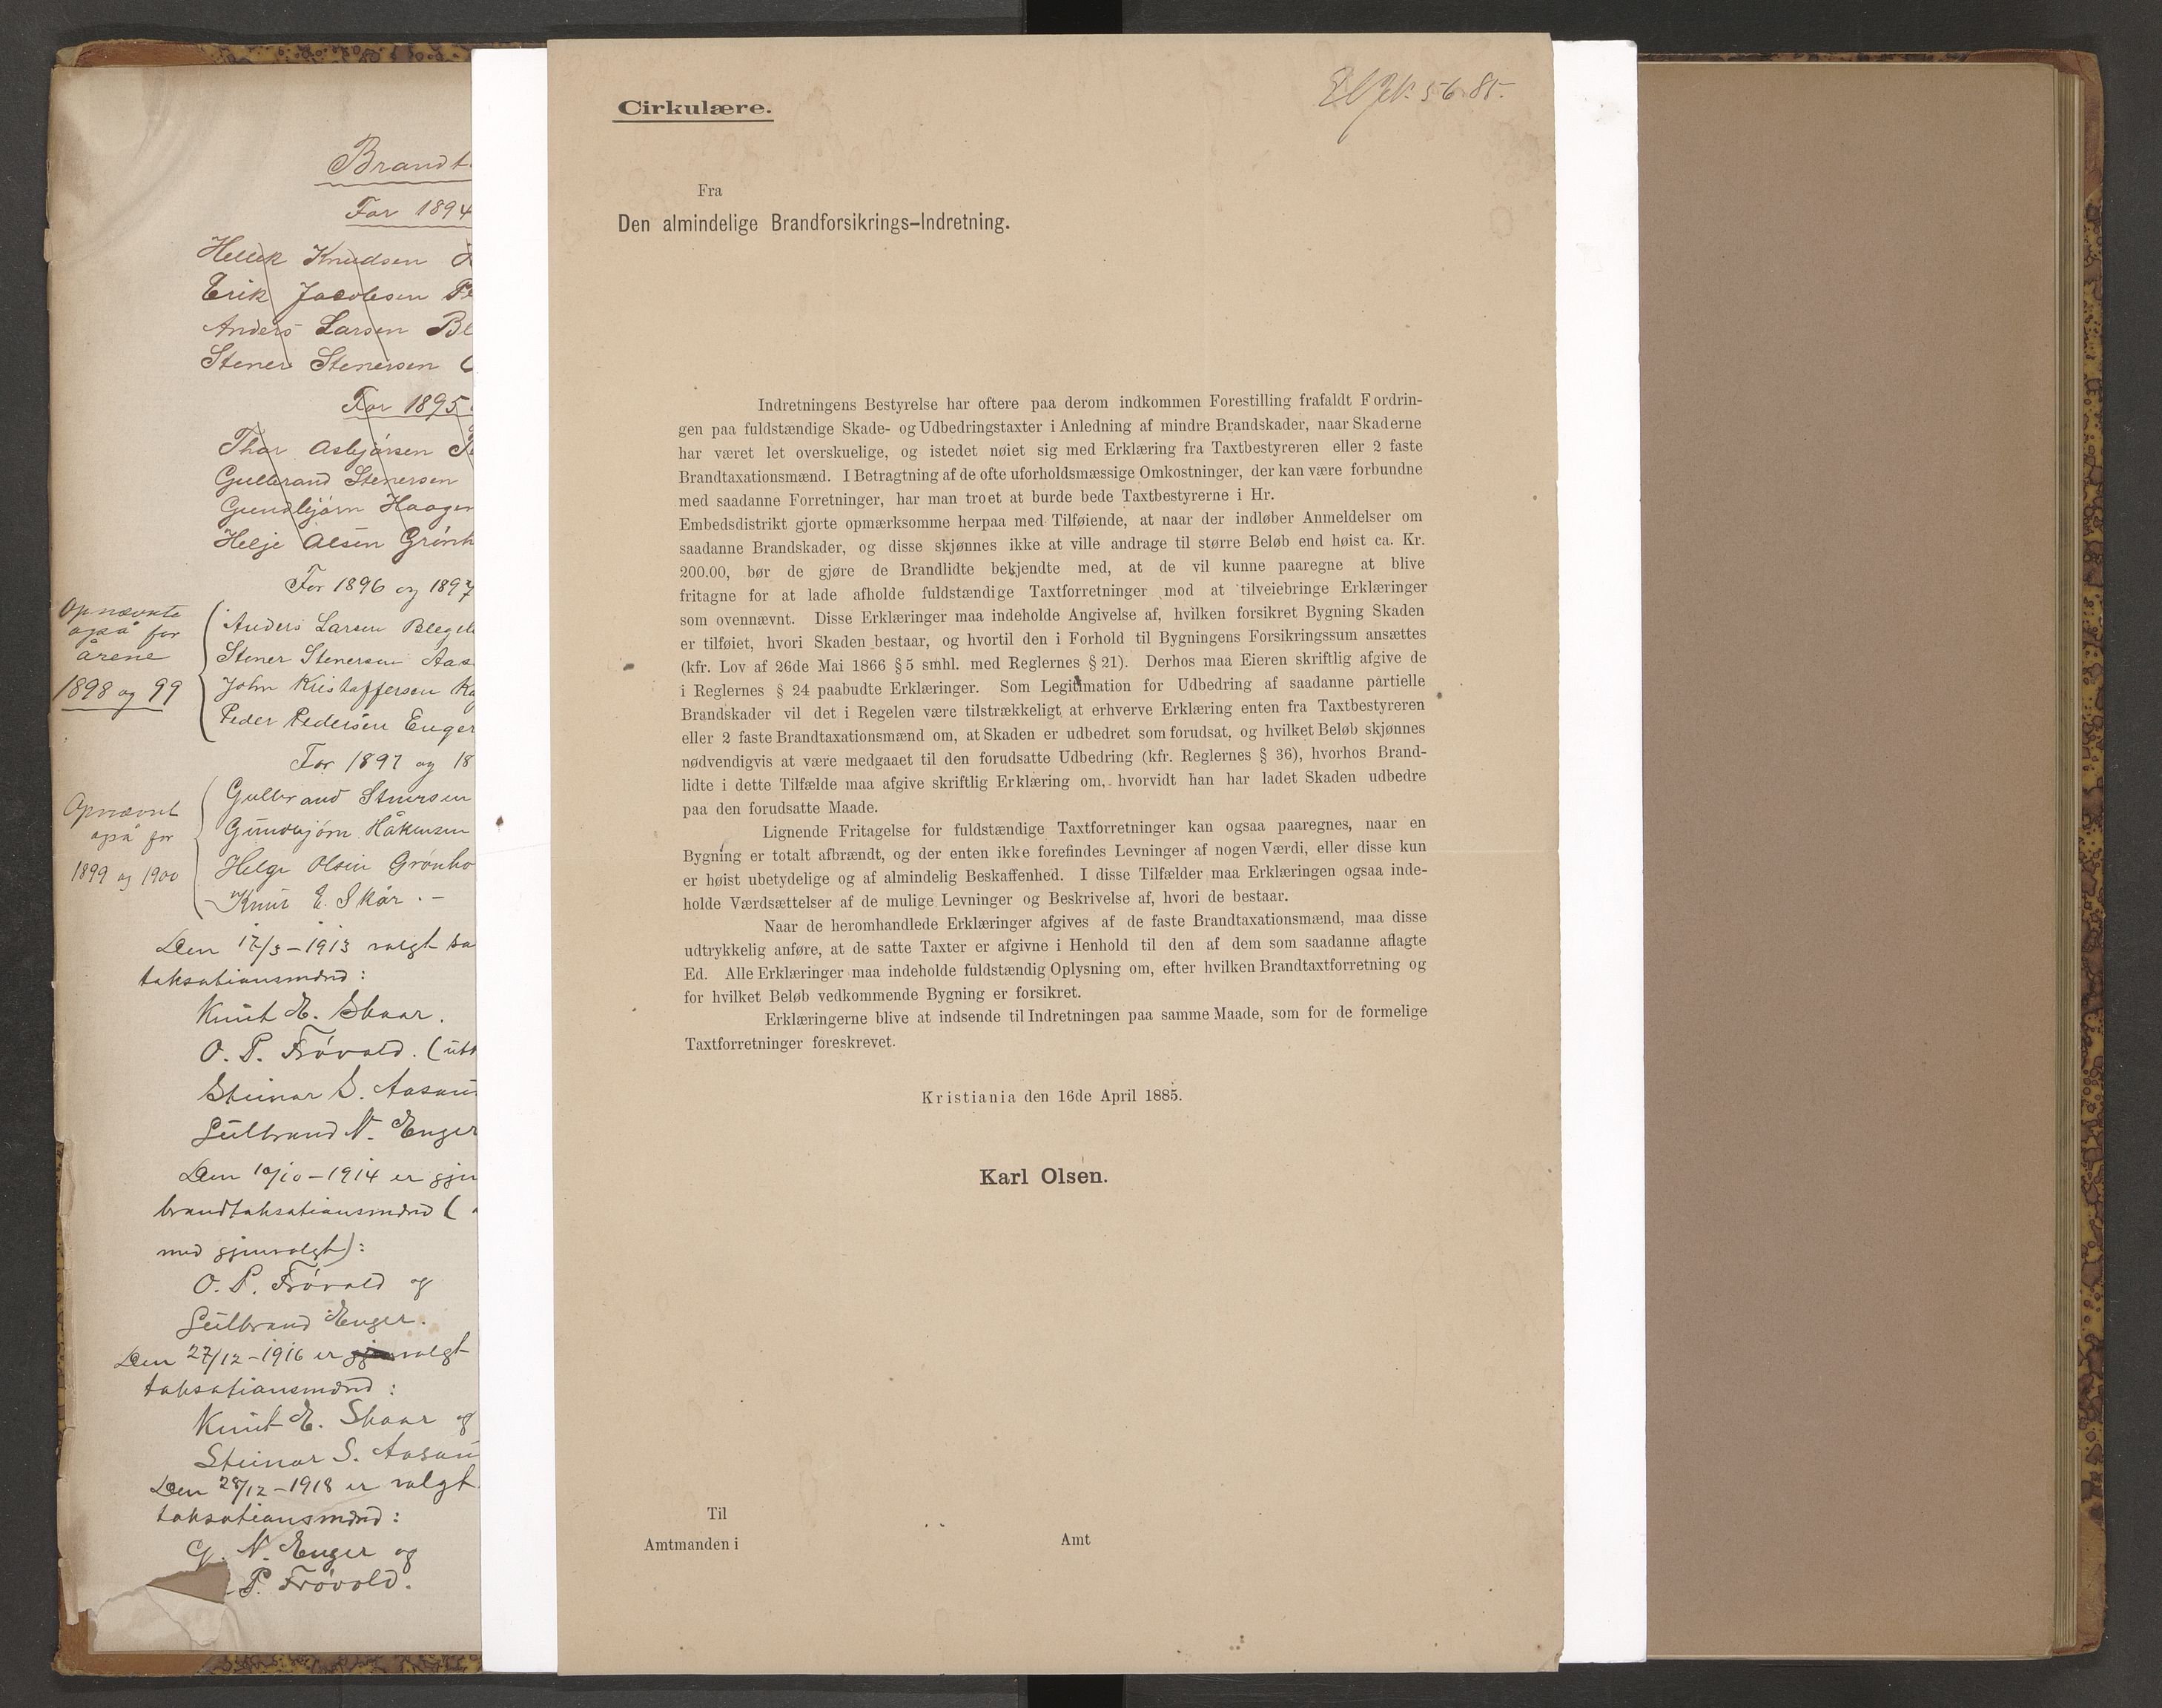 Brandt
For 1894
Hellik Knudsen
Erik Jacobsen
Anders Larsen Bl
Stener Stenersen
For 1895
Thor Asbjørsen
Gulbrand Stenersen
Gundbjørn Haagen
Helje Olsen Grønh
For 1896 og 1897
Opnævnte
også for
årene
1898 og 99
Anders Larsen Blegel
Stener Stenersen Aas
John Kristoffersen
Peder Pedersen Enger
For 1897 og 18
Opnævnt
også for
1899 og 1900
Gulbrand Stenersen
Gundbjørn Håkensen
Helge Olsen Grønho
Knut E. Skår. –
Den 17/3 – 1913 valgt
taksationsmænd:
Knut E. Skaar.
O. P. Frøvold. (utt
Steinar S. Aasau
Gulbrand N. Enger
Den 10/10 – 1914 er gjen
brandtaksationsmænd (
med gjenvalgt):
O. P. Frøvold og
Gulbrand Enger.
Den 27/12 – 1916 er valgt
taksationsmænd:
Knut E. Skaar og
Steinar S. Aasau
Den 28/12 – 1918 er valgt
taksationsmænd:
G. N. Enger og
P. Frøvold.
5 6 85
Cirkulære.
Fra
Den almindelige Brandforsikrings-Indretning.
Indretningens Bestyrelse har oftere paa derom indkommen Forestilling frafaldt Fordrin-
gen paa fuldstændige Skade- og Udbedringstaxter i Anledning af mindre Brandskader, naar Skaderne
har været let overskuelige, og istedet nøiet sig med Erklæring fra Taxtbestyreren eller 2 faste
Brandtaxationsmænd. I Betragtning af de ofte uforholdsmæssige Omkostninger, der kan være forbundne
med saadanne Forretninger, har man troet at burde bede Taxtbestyrerne i Hr.
Embedsdistrikt gjorte opmærksomme herpaa med Tilføiende, at naar der indløber Anmeldelser om
saadanne Brandskader, og disse skjønnes ikke at ville andrage til større Beløb end høist ca. Kr.
200.00, bør de gjøre de Brandlidte bekjendte med, at de vil kunne paaregne at blive
fritagne for at lade afholde fuldstændige Taxtforretninger mod at tilveiebringe Erklæringer
som ovennævnt. Disse Erklæringer maa indeholde Angivelse af, hvilken forsikret Bygning Skaden
er tilføiet, hvori Skaden bestaar, og hvortil den i Forhold til Bygningens Forsikringssum ansættes
(kfr. Lov af 26de Mai 1866 § 5 smhl. med Reglernes § 21). Derhos maa Eieren skriftlig afgive de
i Reglernes § 24 paabudte Erklæringer. Som Legitimation for Udbedring af saadanne partielle
Brandskader vil det i Regelen være tilstrækkeligt at erhverve Erklæring enten fra Taxtbestyreren
eller 2 faste Brandtaxationsmænd om, at Skaden er udbedret som forudsat, og hvilket Beløb skjønnes
nødvendigvis at være medgaaet til den forudsatte Udbedring (kfr. Reglernes § 36), hvorhos Brand-
lidte i dette Tilfælde maa afgive skriftlig Erklæring om, hvorvidt han har ladet Skaden udbedre
paa den forudsatte Maade.
Lignende Fritagelse for fuldstændige Taxtforretninger kan ogsaa paaregnes, naar en
Bygning er totalt afbrændt, og der enten ikke forefindes Levninger af nogen Værdi, eller disse kun
er høist ubetydelige og af almindelig Beskaffenhed. I disse Tilfælder maa Erklæringen ogsaa inde-
holde Værdsættelser af de mulige Levninger og Beskrivelse af, hvori de bestaar.
Naar de heromhandlede Erklæringer afgives af de faste Brandtaxationsmænd, maa disse
udtrykkelig anføre, at de satte Taxter er afgivne i Henhold til den af dem som saadanne aflagte
Ed. Alle Erklæringer maa indeholde fuldstændig Oplysning om, efter hvilken Brandtaxtforretning og
for hvilket Beløb vedkommende Bygning er forsikret.
Erklæringerne blive at indsende til Indretningen paa samme Maade, som for de formelige
Taxtforretninger foreskrevet.
Kristiania den 16de April 1885.
Karl Olsen.
Til
Amtmanden i Amt